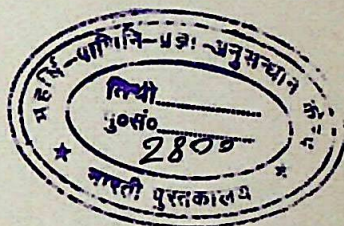 महर्षि-पाणिनि-प्रज्ञा-अनुसन्धान केन्द्र
तिथी
पु०सं०
2800
★ भारती पुस्तकालय ★